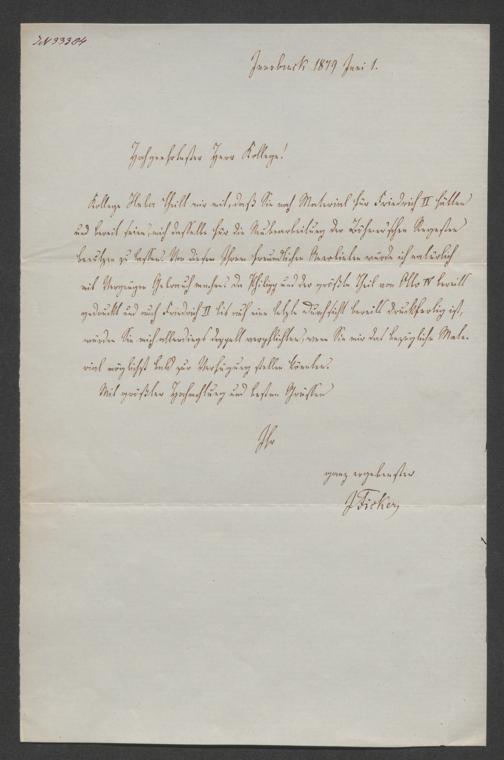 IN 33384
Innsbruck 1879 Juni 1.
Hochgeehrtester Herr Kollege!
Kollege Huber theilt mir mit, daß Sie noch Material für Friedrich II hätten
und bereit seien, mich dasselbe für die Neubearbeitung der Böhmer'schen Regesten
benützen zu lassen. Von diesem Ihrem freundlichen Anerbieten werde ich natürlich
mit Vergnügen Gebrauch machen; da Philipp und der größte Theil von Otto IV bereits
gedruckt und auch Friedrich II bis auf eine letzte Durchsicht bereits druckfertig ist,
würden Sie mich allerdings doppelt verpflichten, wenn Sie mir das bezügliche Mate-
rial möglichst bald zur Verfügung stellen könnten.
Mit größter Hochachtung und besten Grüssen
Ihr
ganz ergebenster
J Ficker